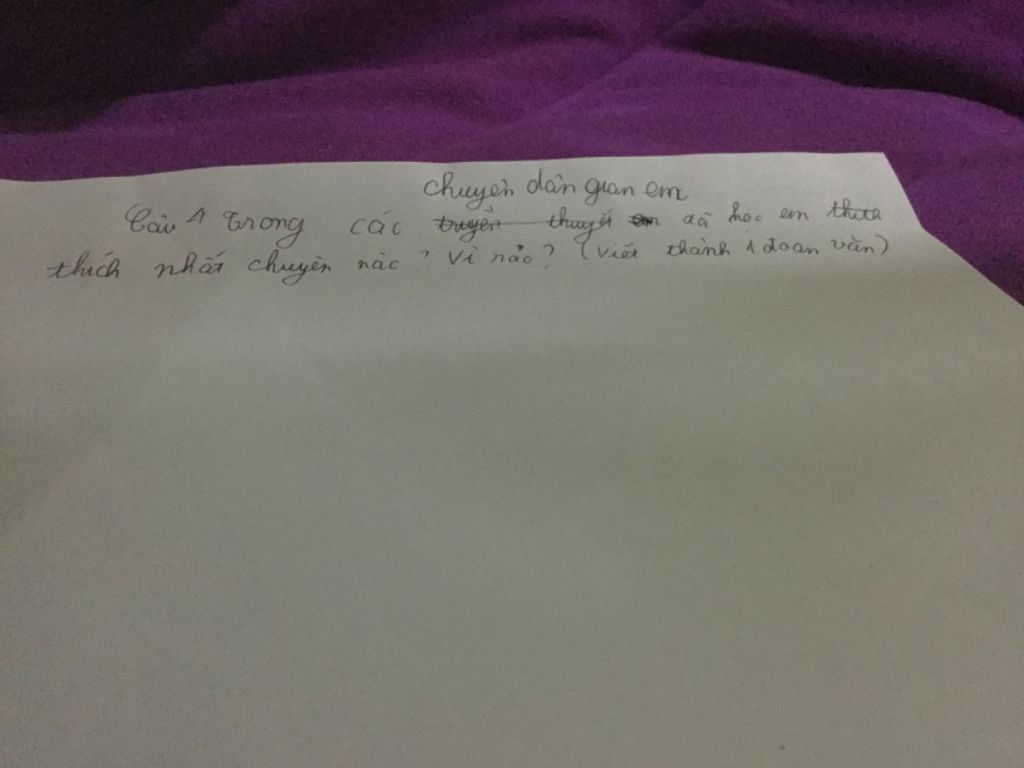 chuyện dân gian em
Câu 1 Trong các truyền thuyết em đã học em thích
thích nhất chuyện nào? Vì nảo? (Viết thành 1 đoạn văn)